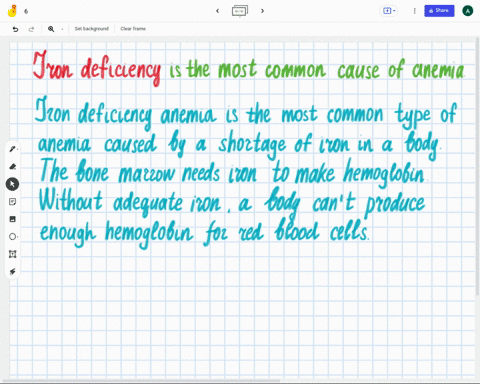 6
Share
A
Set background
Clear frame
Iron deficiency is the most common cause of anemia
Iron deficiency anemia is the most common type of
anemia caused by a shortage of iron in a body.
The bone marrow needs iron to make hemoglobin.
Without adequate iron, a body can't produce
enough hemoglobin for red blood cells.